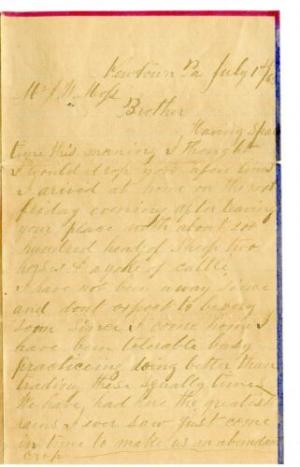 Newtown Pa July 1st
Mr J W Moss
Brother
Having Spar
time this morning I thought
I would drop you a few lines
I arrived at home on the
friday evening after leaving
your place with about
hundred head of Sheep two
horses & a yoke of cattle
I have not been away since
and dont expect to be very
soon Since I come home I
have been tolerable busy
practiceing doing better than
trading these squally times
We have had here the greatest
rains I ever saw Just come
in time to make us an abundan
crop